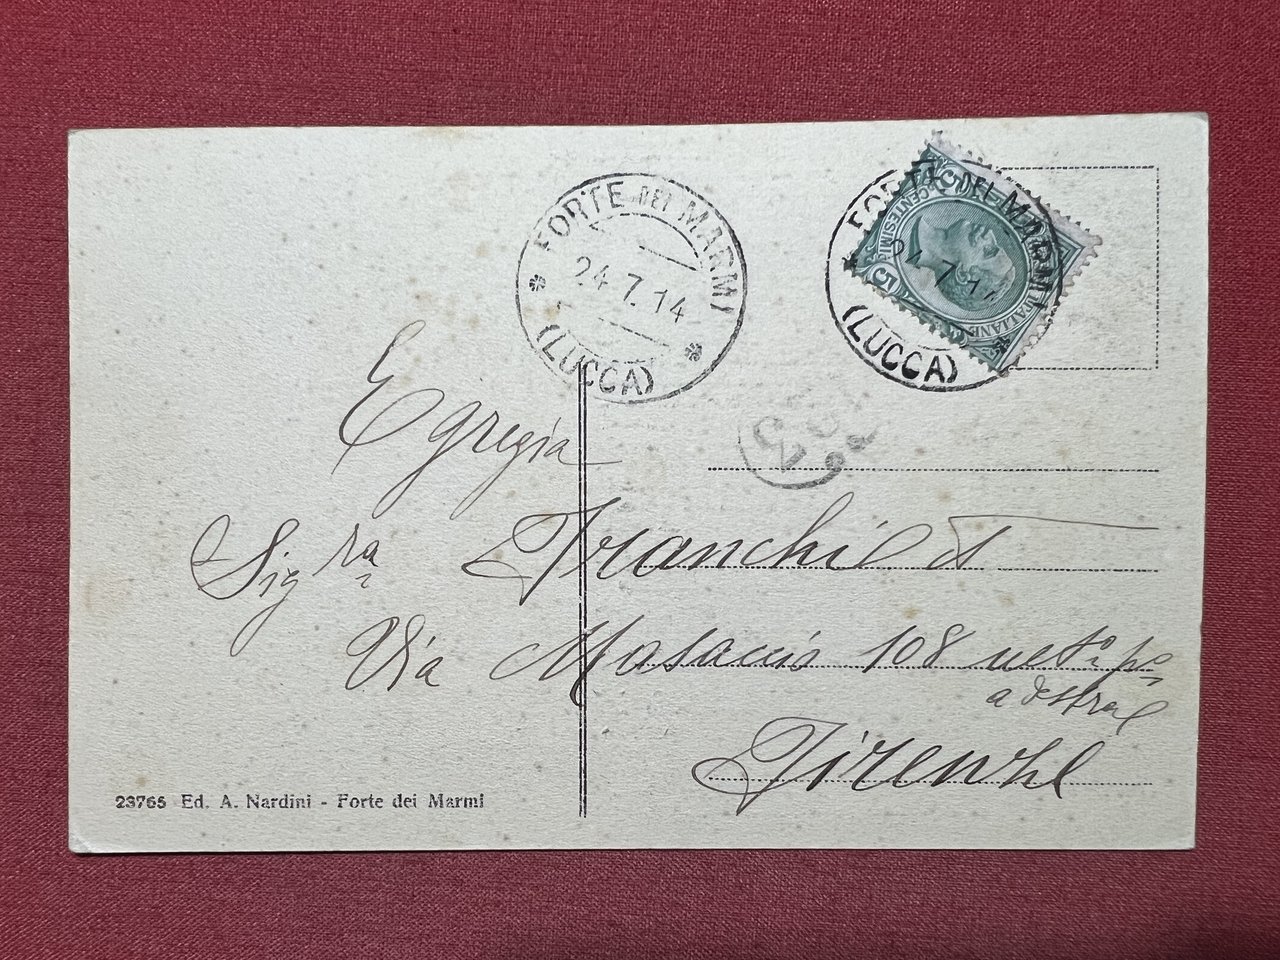 FORTE DEI MARMI
24.7.14
(LUCCA)
FORTE DEI MARMI
24.7.14
(LUCCA)
5 CENTESIMI
POSTE ITALIANE
Egregia
Sigra Franchi
Via Masaccio 108
a destra
Firenze
23765 Ed. A. Nardini - Forte dei Marmi